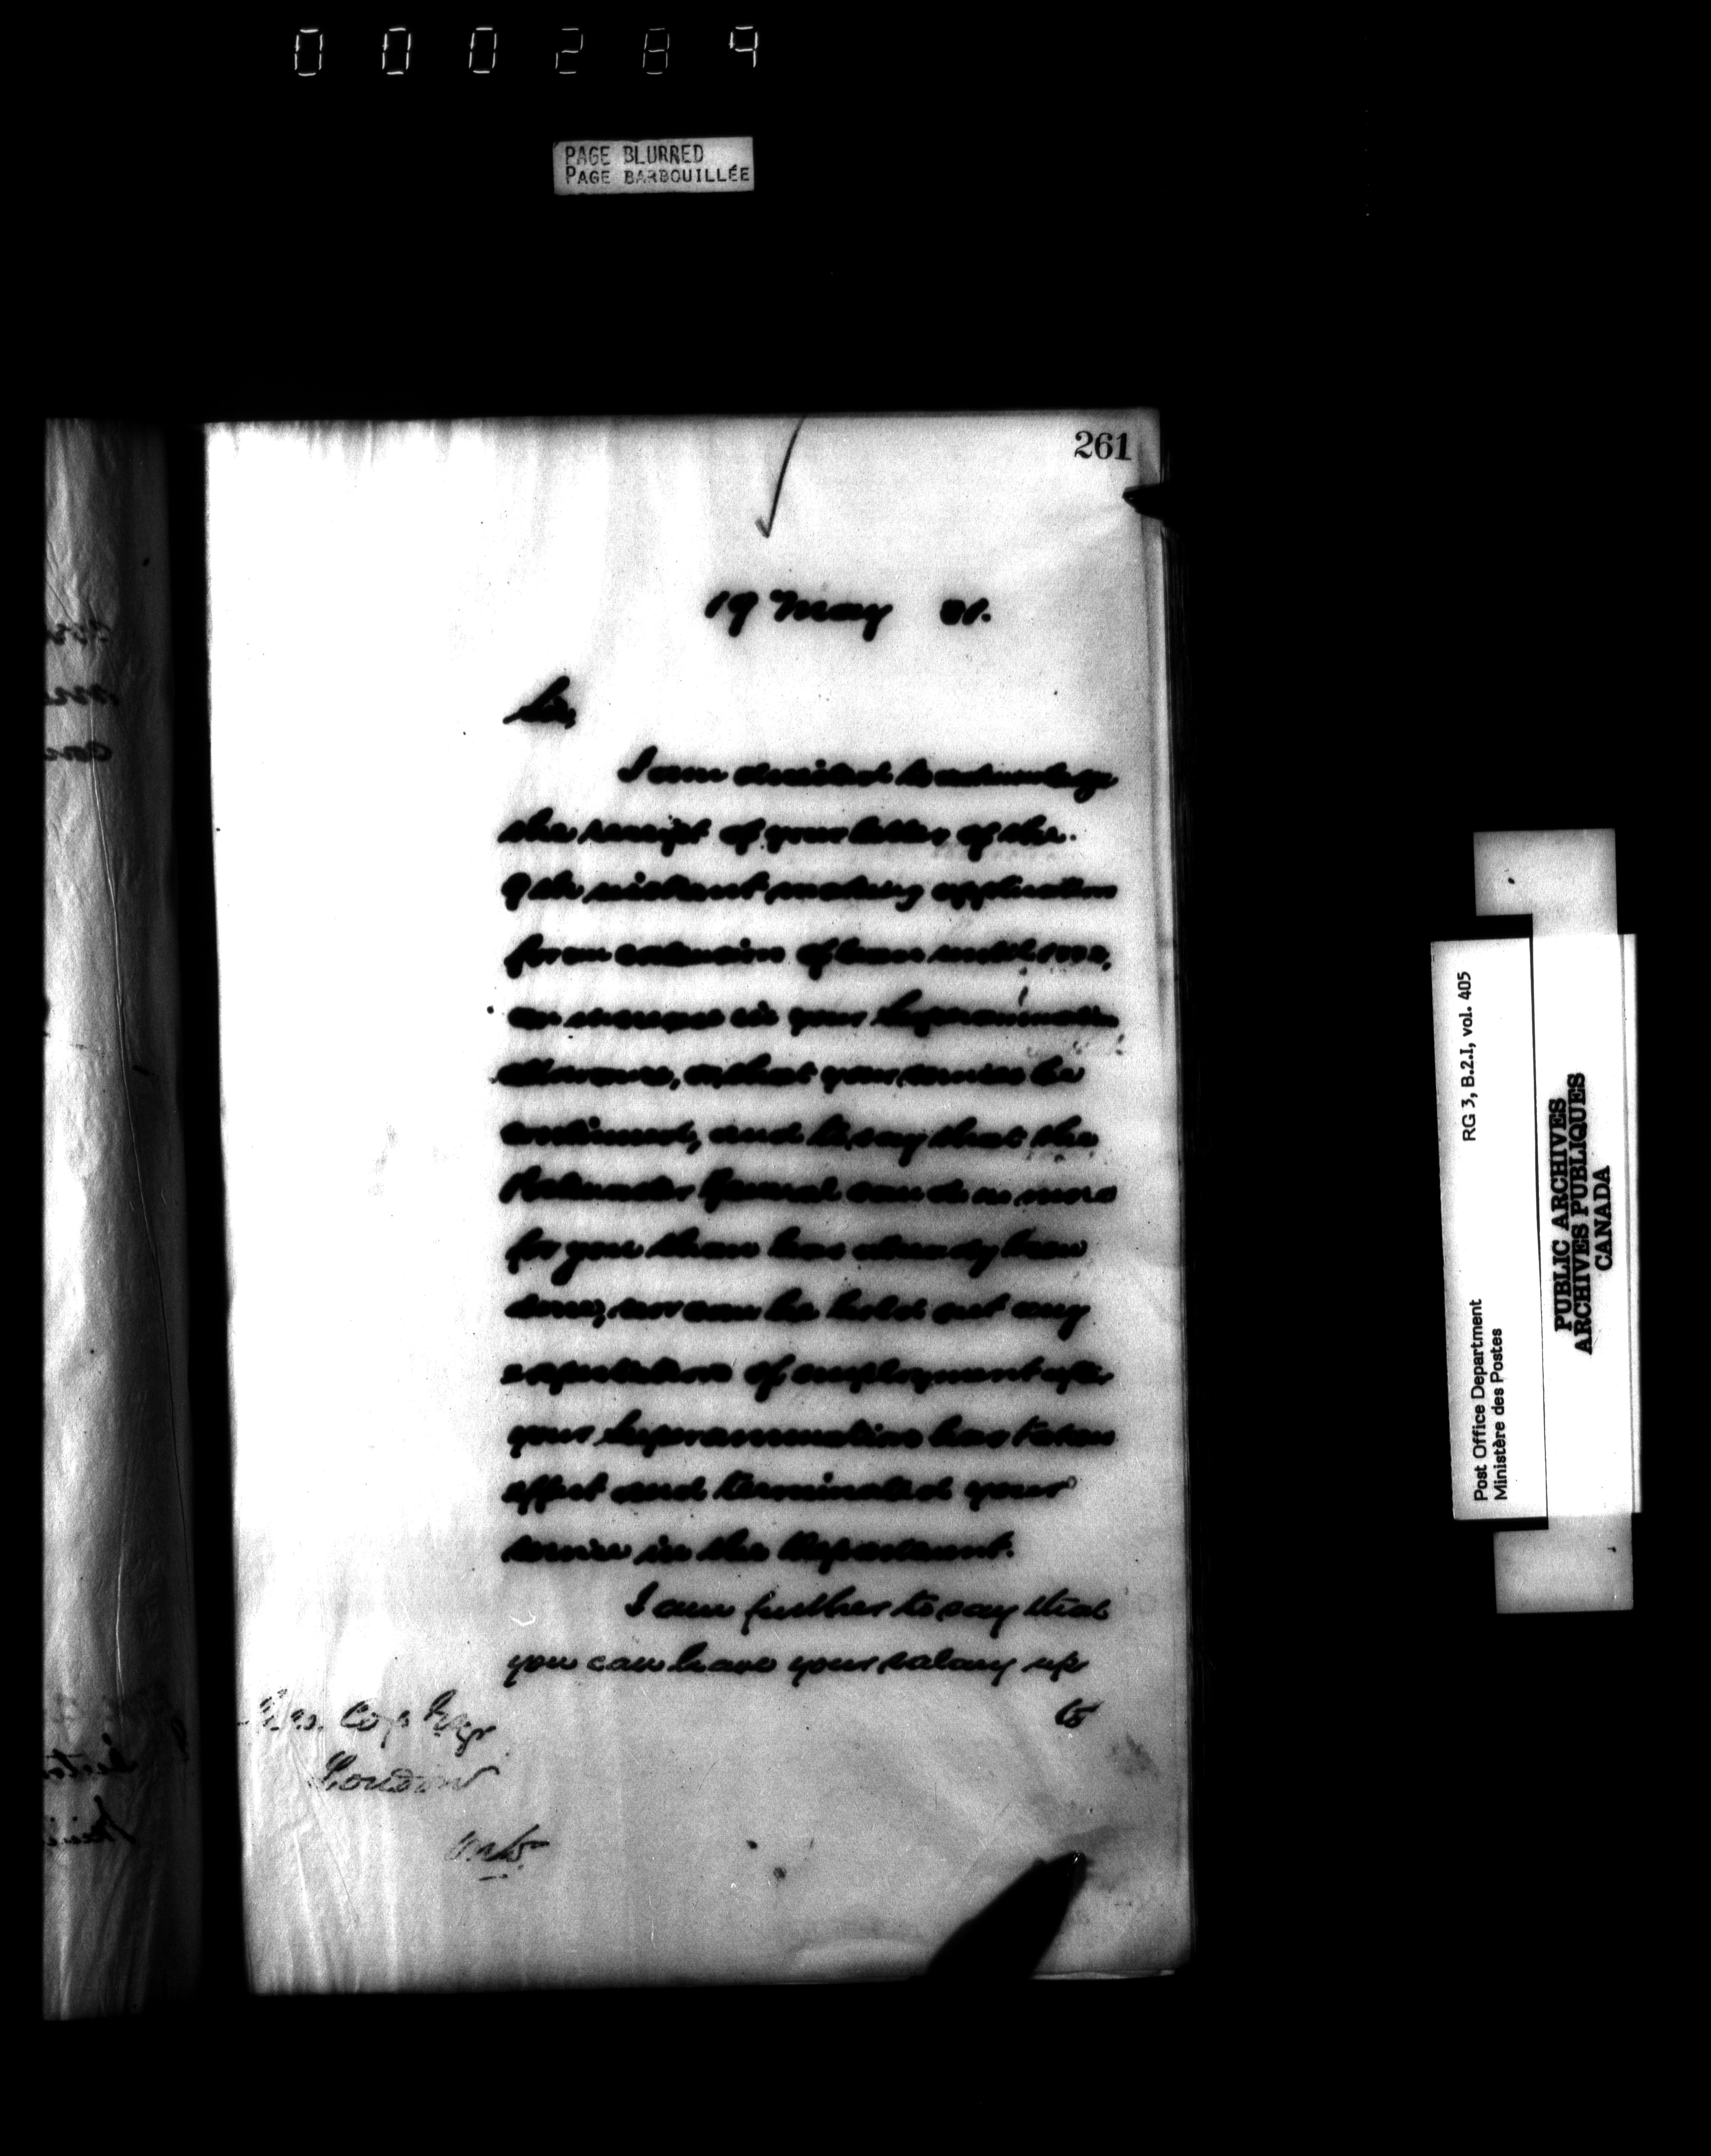 000284
PAGE BLURRED
PAGE BARBOUILLÉE
261
19 May 81.
Sir,
I am directed to acknowledge
the receipt of your letter of the
9th instant making application
for an extension of leave until 1882,
an increase in your Superannuation
allowance, or that your services be
continued, and to say that the
Postmaster General can do no more
for you than has already been
done, nor can he hold out any
expectation of employment after
your Superannuation has taken
effect and terminated your
service in the Department.
I am further to say that
you can have your salary up
to
Cox Esqr
London
Ont.
Post Office Department
Ministère des Postes
RG 3, B.2.I, vol. 405
PUBLIC ARCHIVES
ARCHIVES PUBLIQUES
CANADA